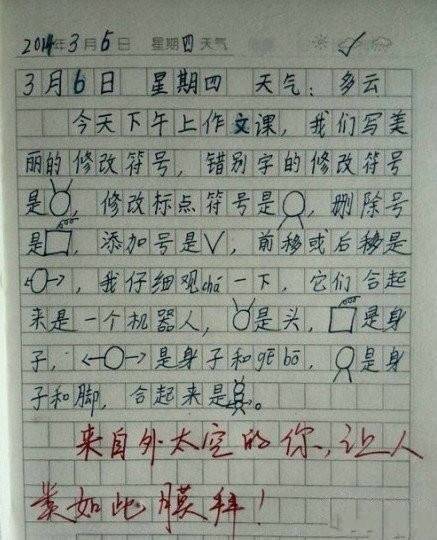 2014年3月6日 星期四天气
3月6日 星期四 天气：多云
今天下午上作文课，我们写美
丽的修改符号，错别字的修改符号
是，修改标点符号是，删除号
是，添加号是V，前移或后移是
，我仔细观chá一下，它们合起
来是一个机器人，是头，是身
子，是身子和gē bō，是身
子和脚，合起来是。
来自外太空的你，让人
类如此膜拜！